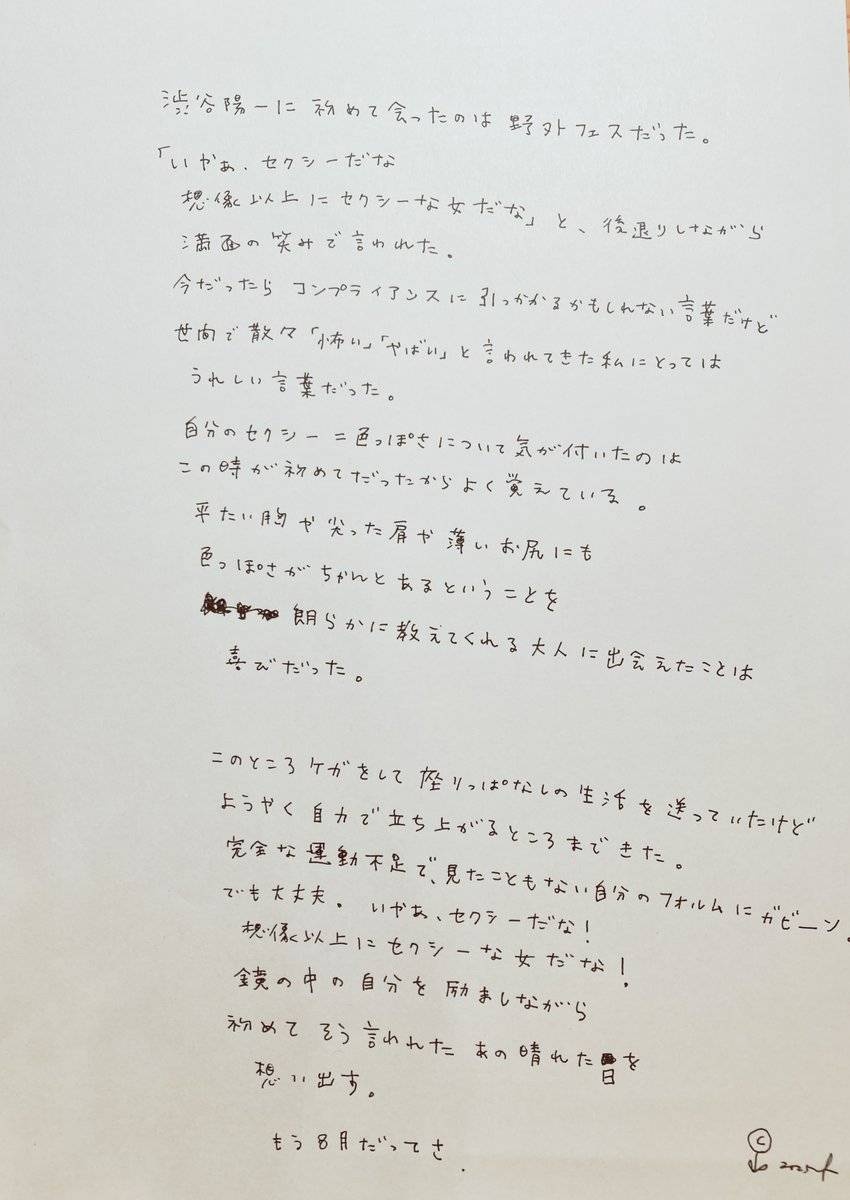 渋谷陽一に 初めて会ったのは 野外フェスだった。
「いやぁ、セクシーだな
想像以上にセクシーな女だな」と、後退りしながら
満面の笑みで言われた。
今だったら コンプライアンスに引っかかるかもしれない言葉だけど
世間で散々「怖い」「やばい」と言われてきた私にとっては
うれしい言葉だった。
自分のセクシー=色っぽさについて気が付いたのは
この時が初めてだったからよく覚えている。
平たい胸や尖った肩や薄いお尻にも
色っぽさがちゃんとあるということを
朗らかに教えてくれる大人に出会えたことは
喜びだった。
このところケガをして座りっぱなしの生活を送っていたけど
ようやく自力で立ち上がるところまできた。
完全な運動不足で、見たこともない自分のフォルムにガビーン。
でも大丈夫。いやあ、セクシーだな!
想像以上にセクシーな女だな!
鏡の中の自分を励ましながら
初めてそう言われたあの晴れた日を
想い出す。
もう8月だってさ.
©
2025